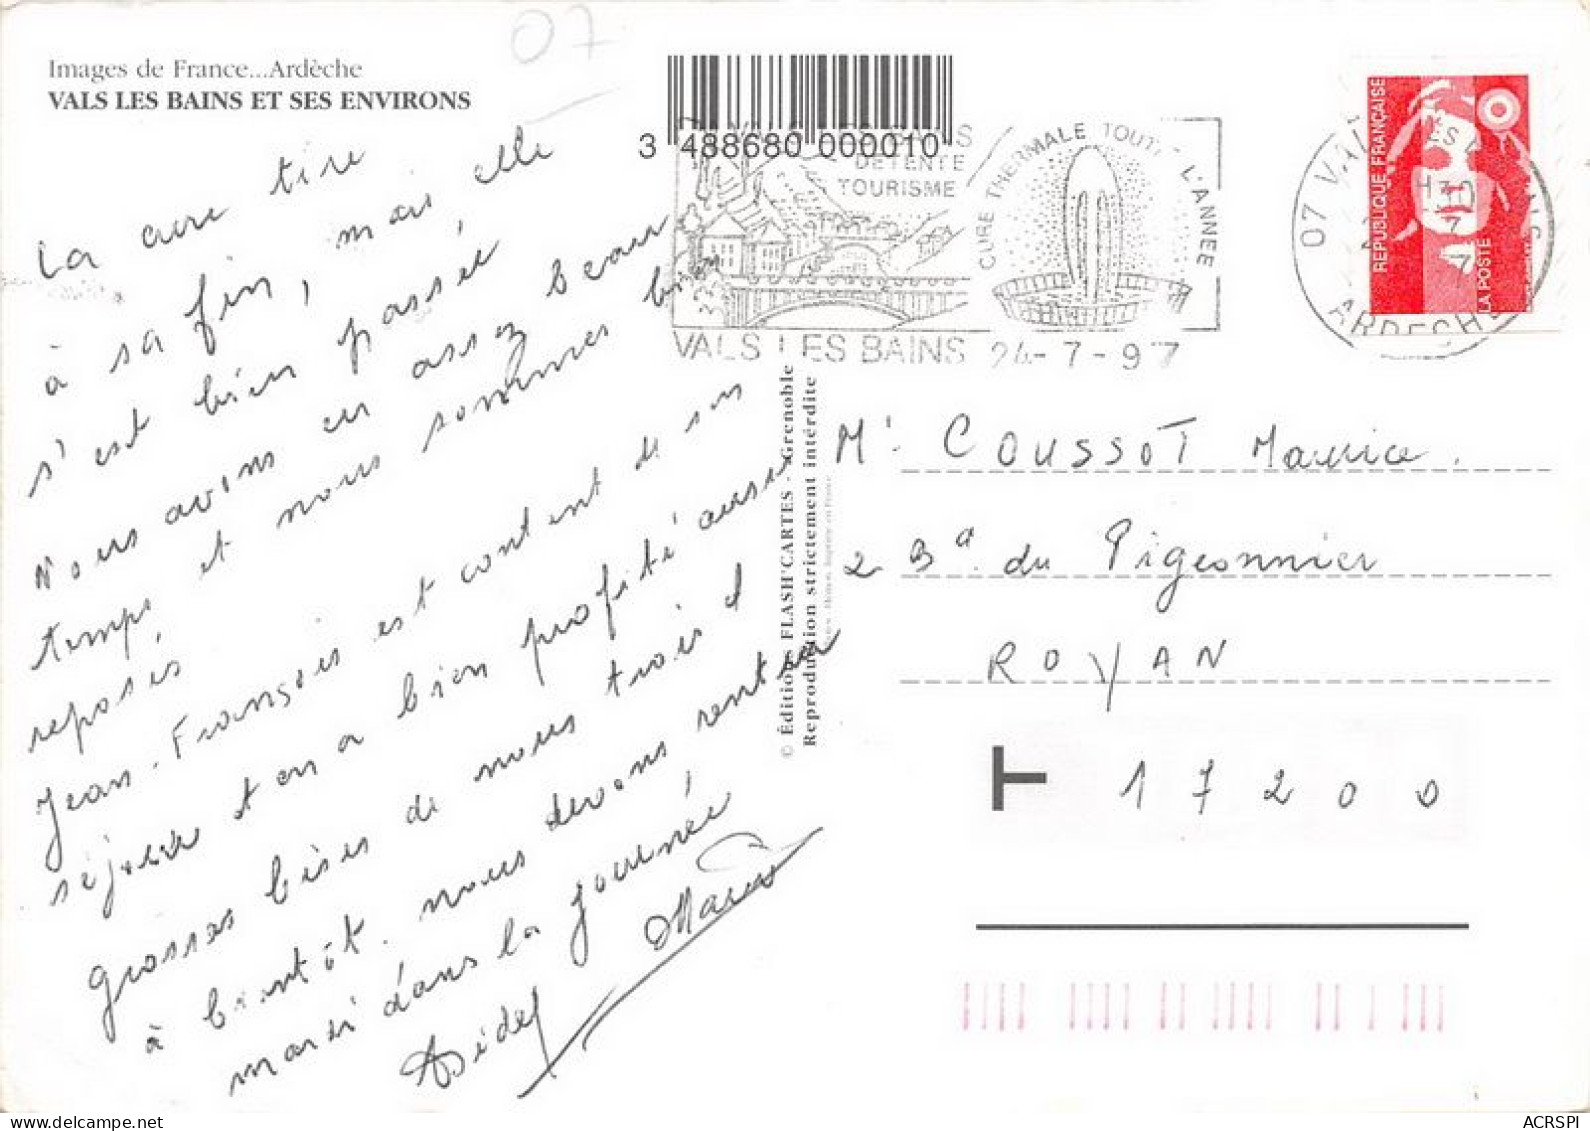 07
Images de France...Ardèche
VALS LES BAINS ET SES ENVIRONS
La cure tire
à sa fin, mais elle
s'est bien passée
Nous avons eu assez beau
temps et nous sommes bien
reposés
Jean-François est content de son
séjour et en a bien profité aussi
grosses bises de nous trois et
à bientôt. nous devons rentrer
mardi dans la journée,
3 488680 000010
DETENTE
TOURISME
CURE THERMALE TOUTE L'ANNEE
VALS LES BAINS 24-7-97
07 VALS
ARDECHE
REPUBLIQUE FRANÇAISE
LA POSTE
© Éditions FLASH'CARTES - Grenoble
Reproduction strictement interdite
Mr COUSSOT Maurice.
2 Bd. du Pigeonnier
ROYAN
T 17200
www.delcampe.net
ACRSPI